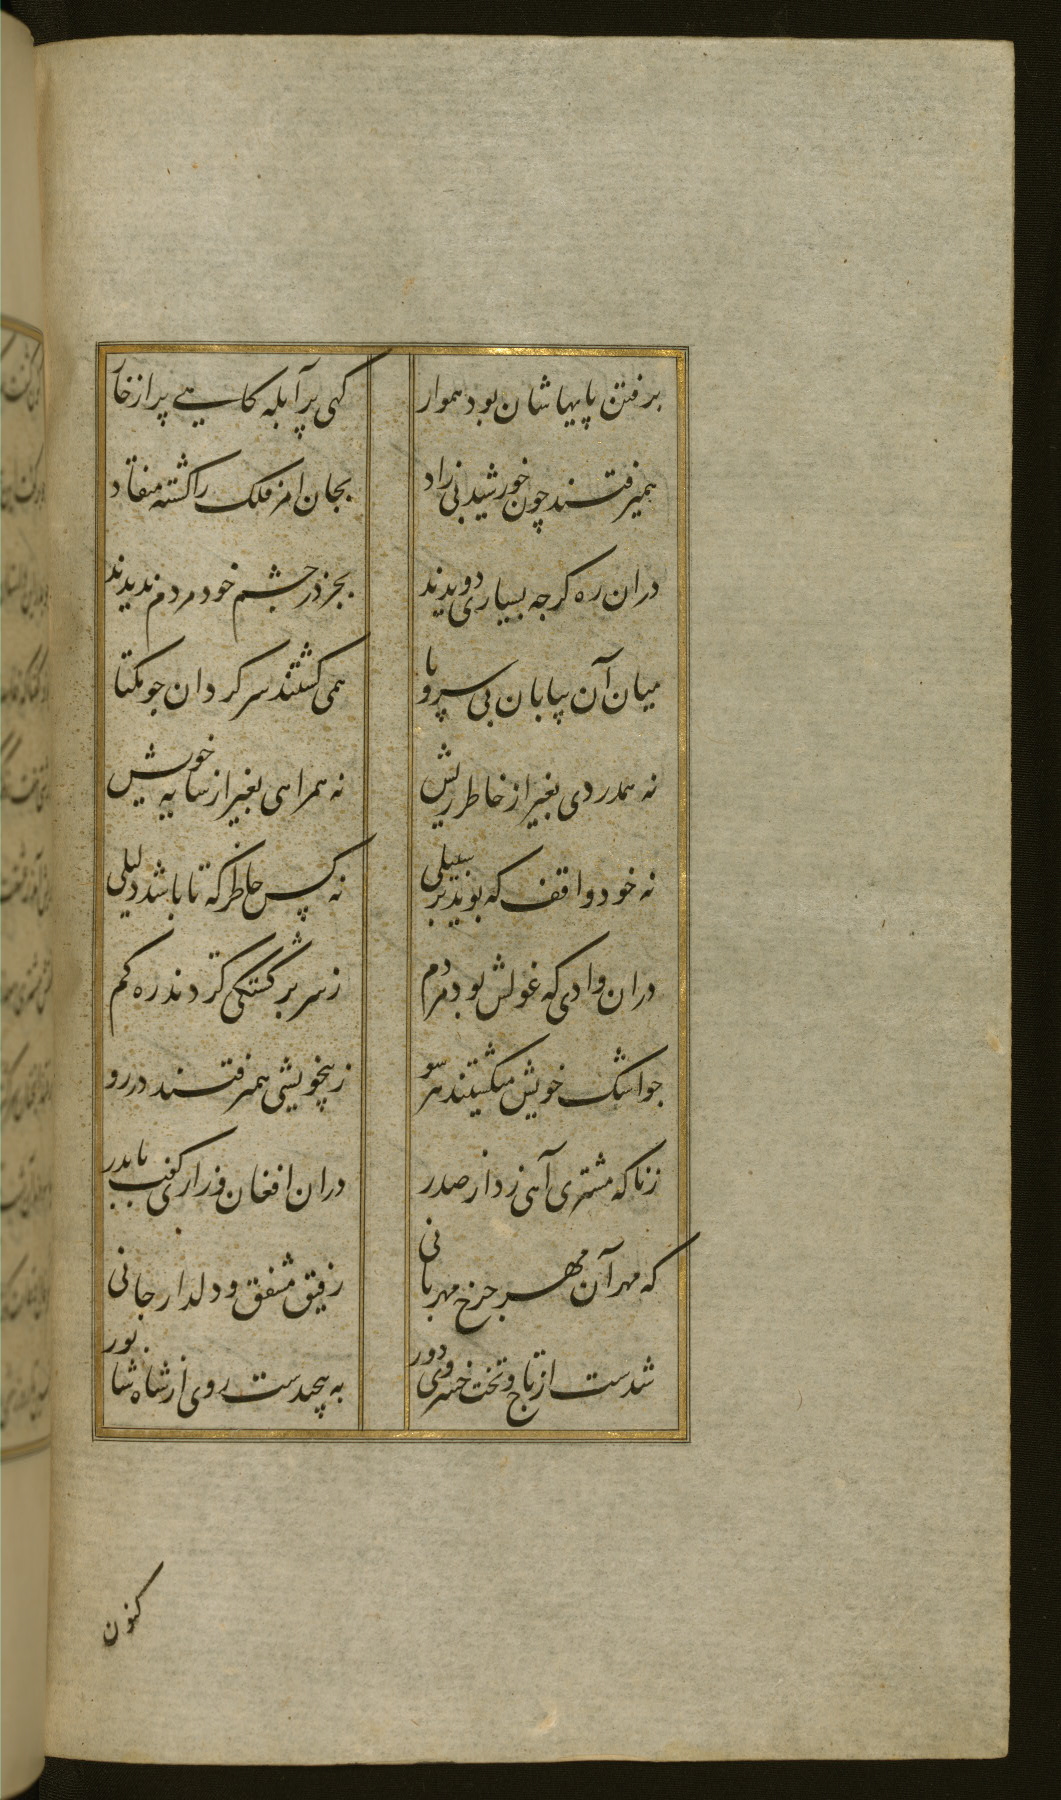 برفتن پایهاشان بود هموار
کهی پر آبله کاهی پر از خار
همیرفتند چون خورشید بی زاد
بجان امر فلک را کشته منقاد
دران ره کرچه بسیاری دویدند
بجز در چشم خود مردم ندیدند
میان آن بیابان بی سر و پا
همی کشتند سرکردان جو نکتا
نه همدردی بغیر از خاطر ریش
نه همراهی بغیر از سایه خویش
نه خود واقف که بویند بر سبیلی
نه کس حاظر که تا باشد دلیلی
دران وادی که غولش بود مردم
ز سر برکشتکی کردند ره کم
جو اشک خویش میکشتند هر سو
ز بیخویشی همیرفتند در رو
زناکه مشتری آهی زد از صدر
دران افغان و زاری کفت با بدر
که مهر آن مهر چرخ مهربانی
رفیق مشفق و دلدار جانی
شدست از تاج و تخت خسروی دور
به پیچیدست روی از شاه شابور
کنون